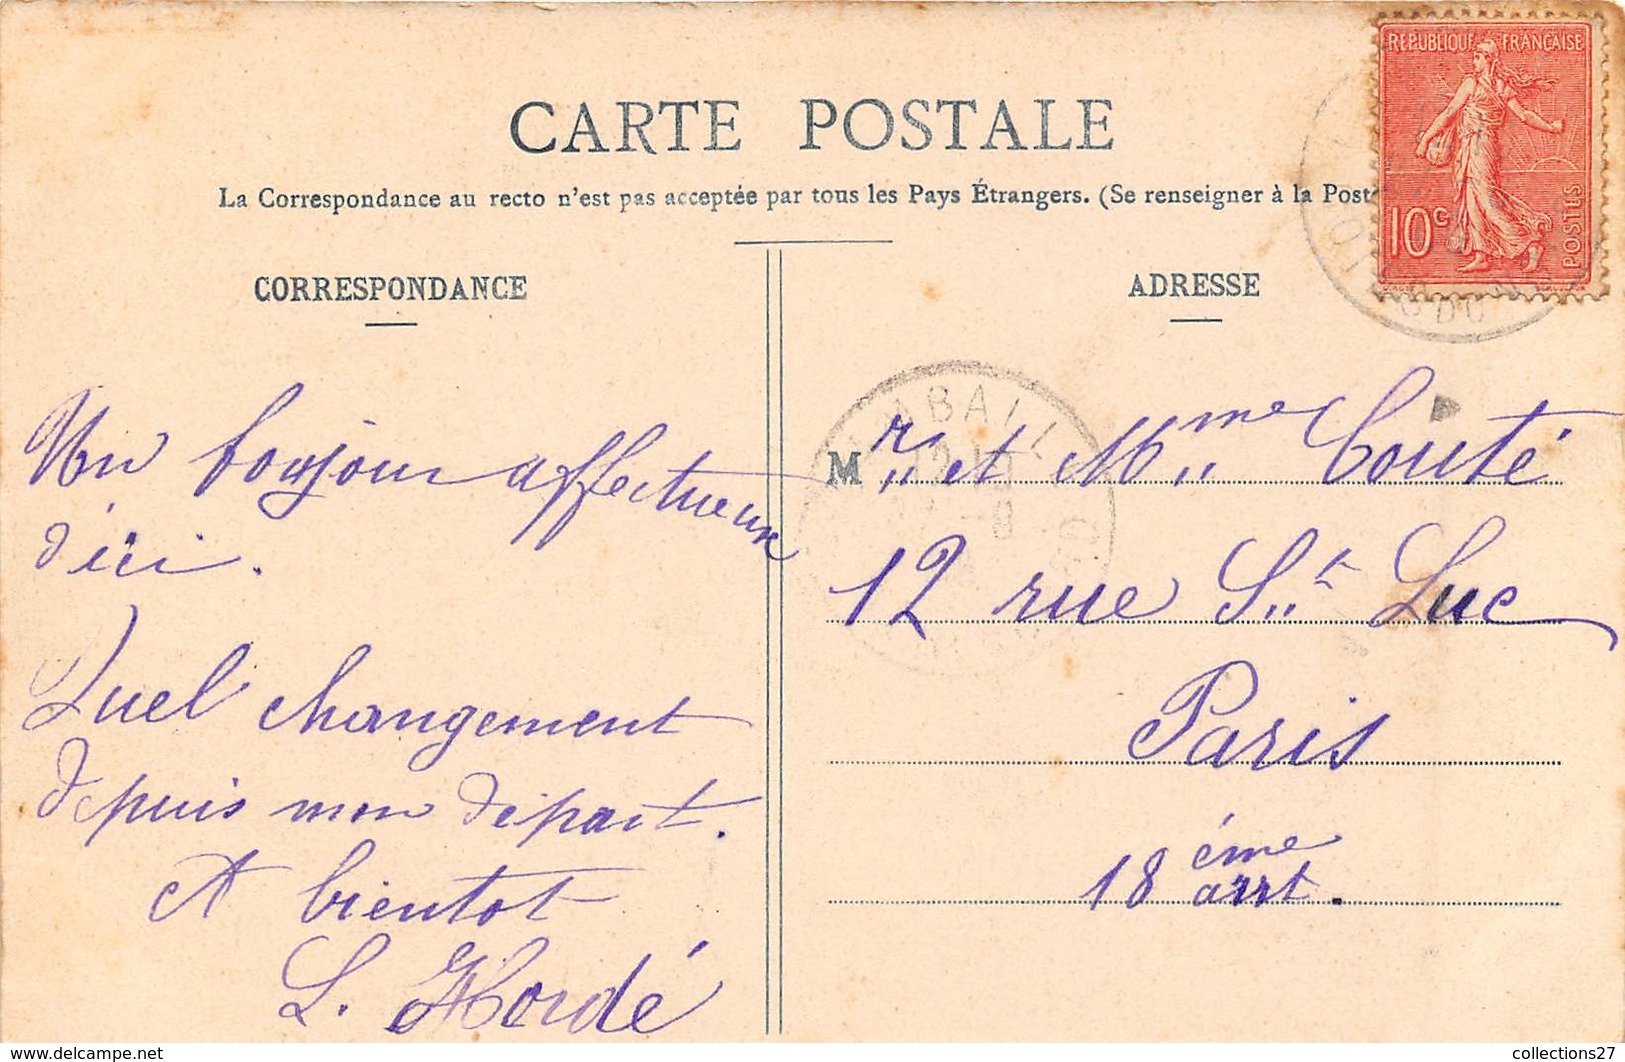 REPUBLIQUE FRANÇAISE
10 c
POSTES
CARTE POSTALE
La Correspondance au recto n'est pas acceptée par tous les Pays Étrangers. (Se renseigner à la Post
CORRESPONDANCE
Un bonjour affectueux
d'ici.
Quel changement
depuis mon départ.
A bientot
L. Hordé
ADRESSE
Mr et Mme Couté
12 rue St Luc
Paris
18 ème arrt.
collections27
www.delcampe.net